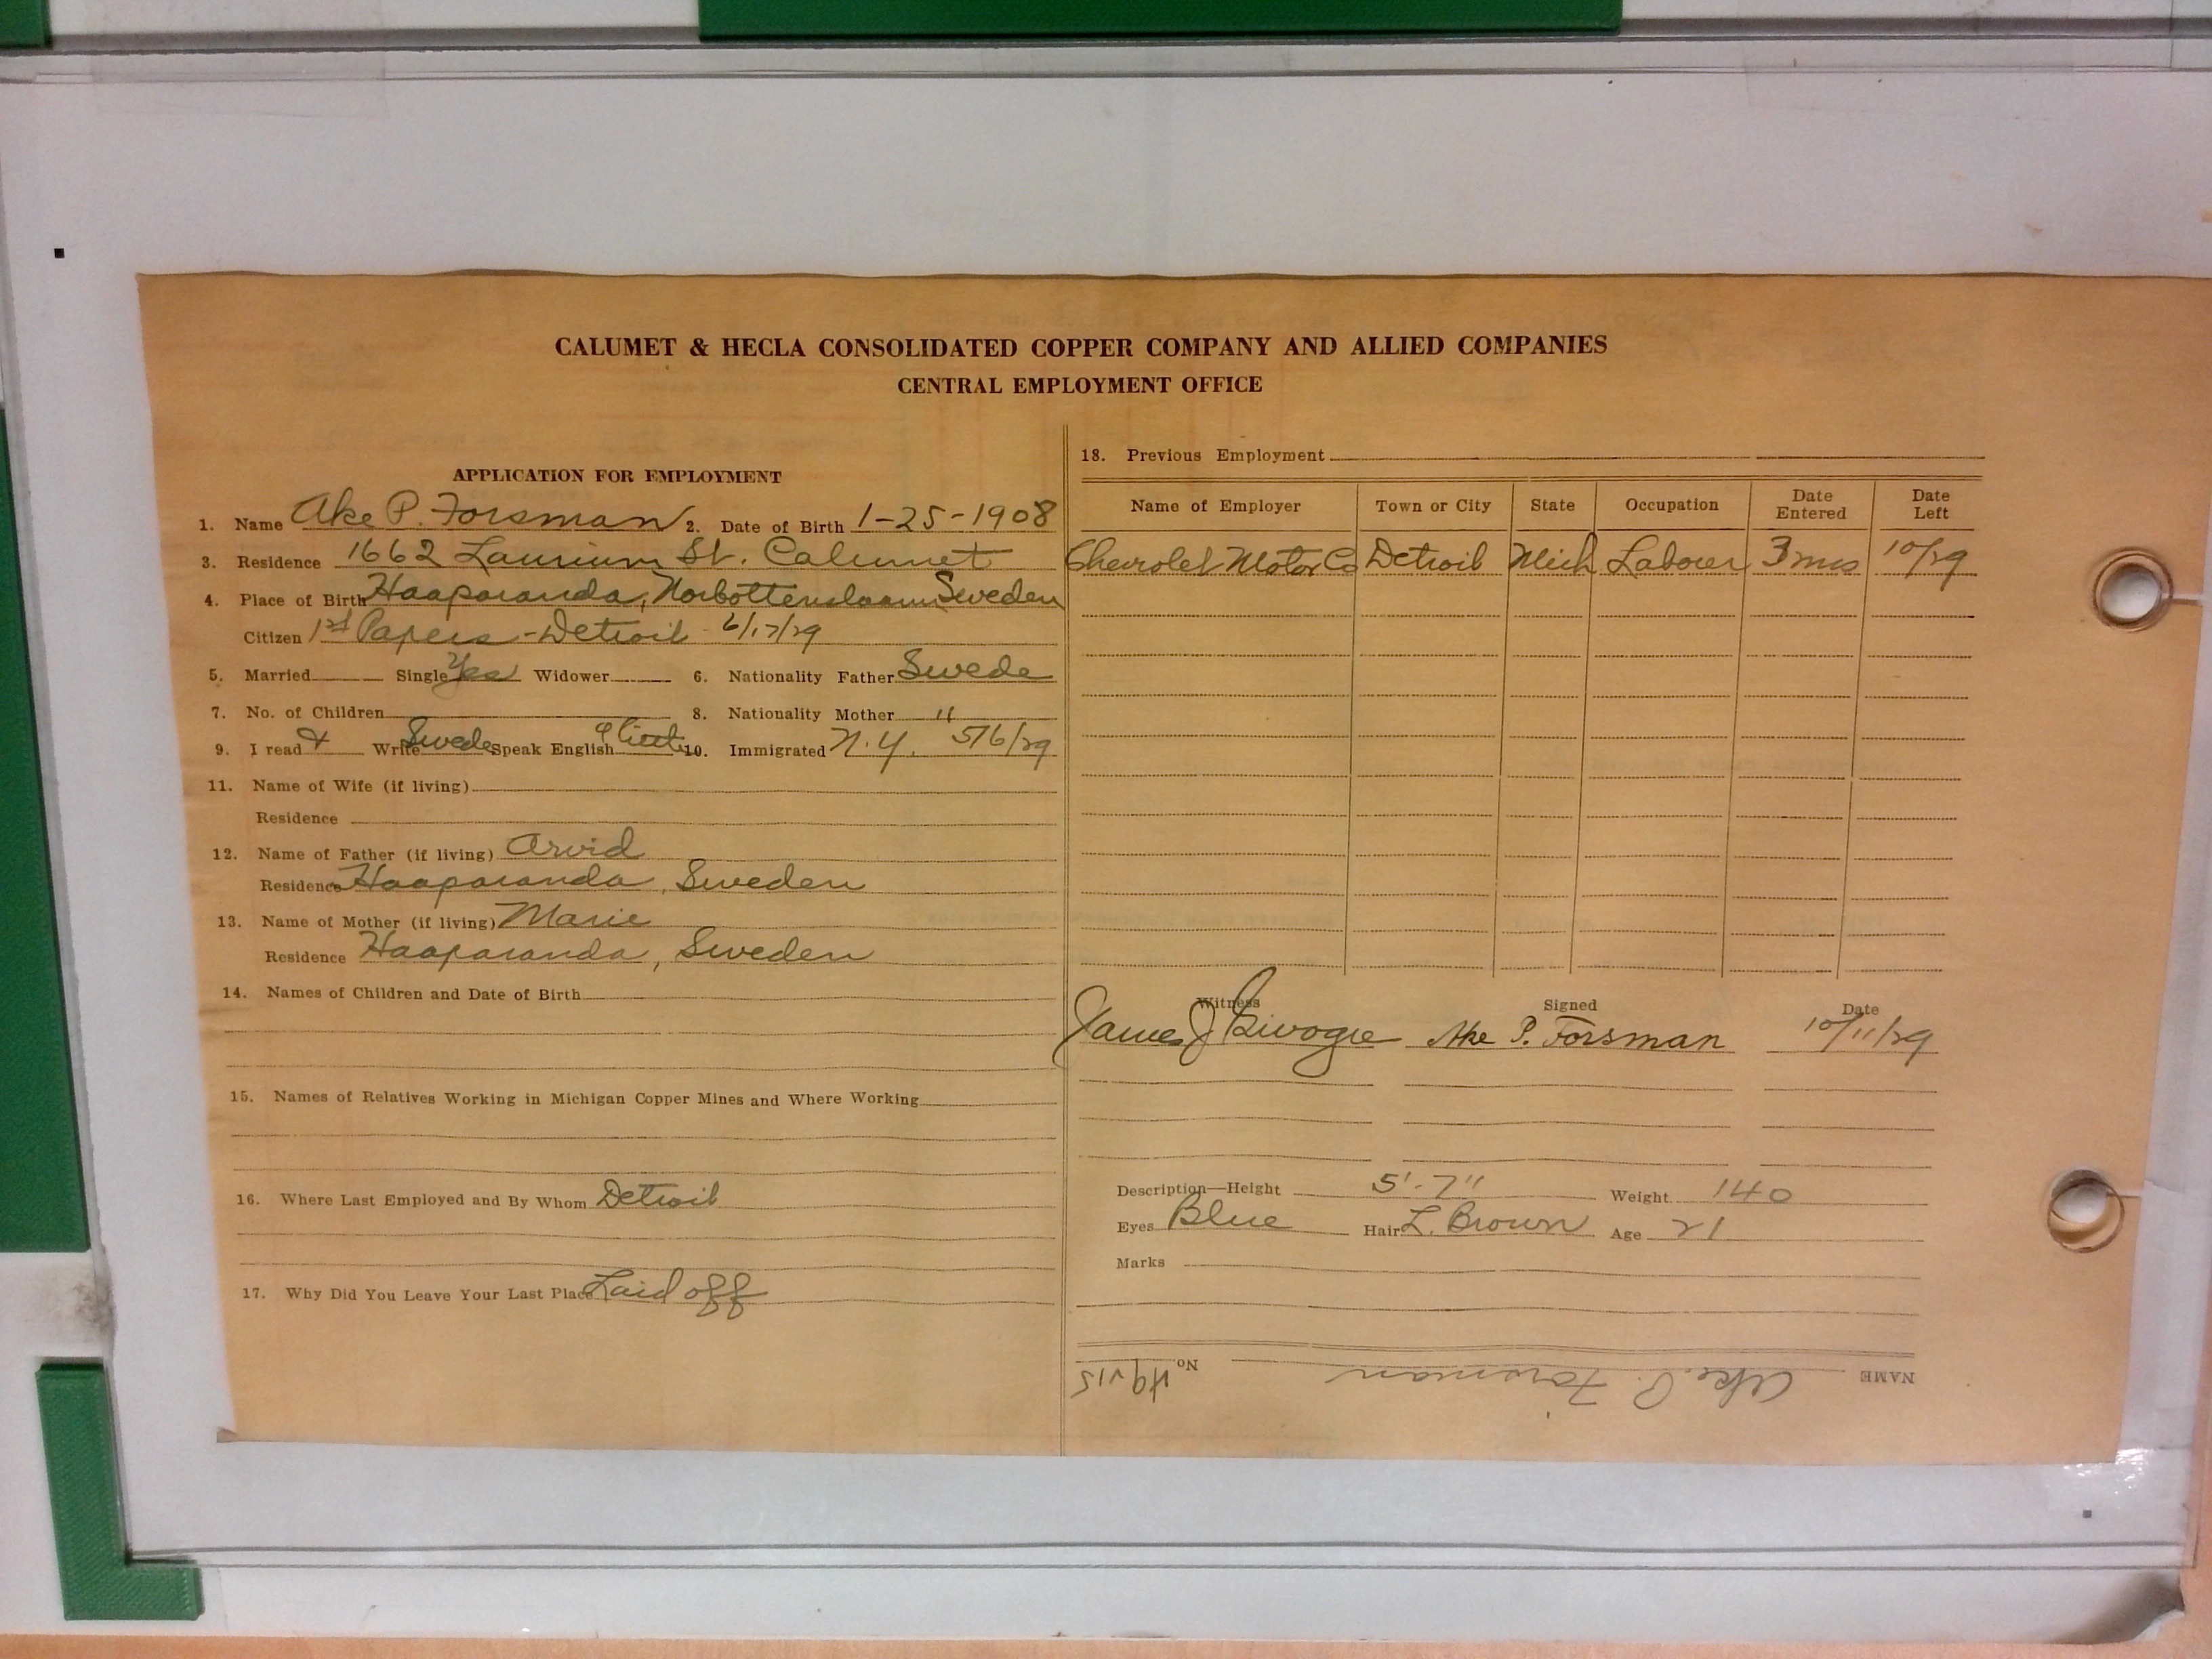 CALUMET & HECLA CONSOLIDATED COPPER COMPANY AND ALLIED COMPANIES
CENTRAL EMPLOYMENT OFFICE
APPLICATION FOR EMPLOYMENT
1. Name Ake P. Forsman 2. Date of Birth 1-25-1908
3. Residence 1662 Laurium St. Calumet
4. Place of Birth Haaparanda, Sweden
Citizen 1st Papers - Detroit 6/17/29
5. Married Single Yes Widower 6. Nationality Father Swede
7. No. of Children 8. Nationality Mother "
9. I read & Write Swede Speak English a little 10. Immigrated N.Y. 5/6/29
11. Name of Wife (if living)
Residence
12. Name of Father (if living) Arvid
Residence Haaparanda, Sweden
13. Name of Mother (if living) Marie
Residence Haaparanda, Sweden
14. Names of Children and Date of Birth
15. Names of Relatives Working in Michigan Copper Mines and Where Working
16. Where Last Employed and By Whom Detroit
17. Why Did You Leave Your Last Place Laid off
18. Previous Employment
Name of Employer Town or City State Occupation Date Entered Date Left
Chevrolet Motor Co Detroit Mich Labourer 3 mos 10/29
Witness Signed Date
James J Ake P. Forsman 10/11/29
Description—Height 5'-7" Weight 140
Eyes Blue Hair L. Brown Age 21
Marks
NAME Ake P. Forsman No